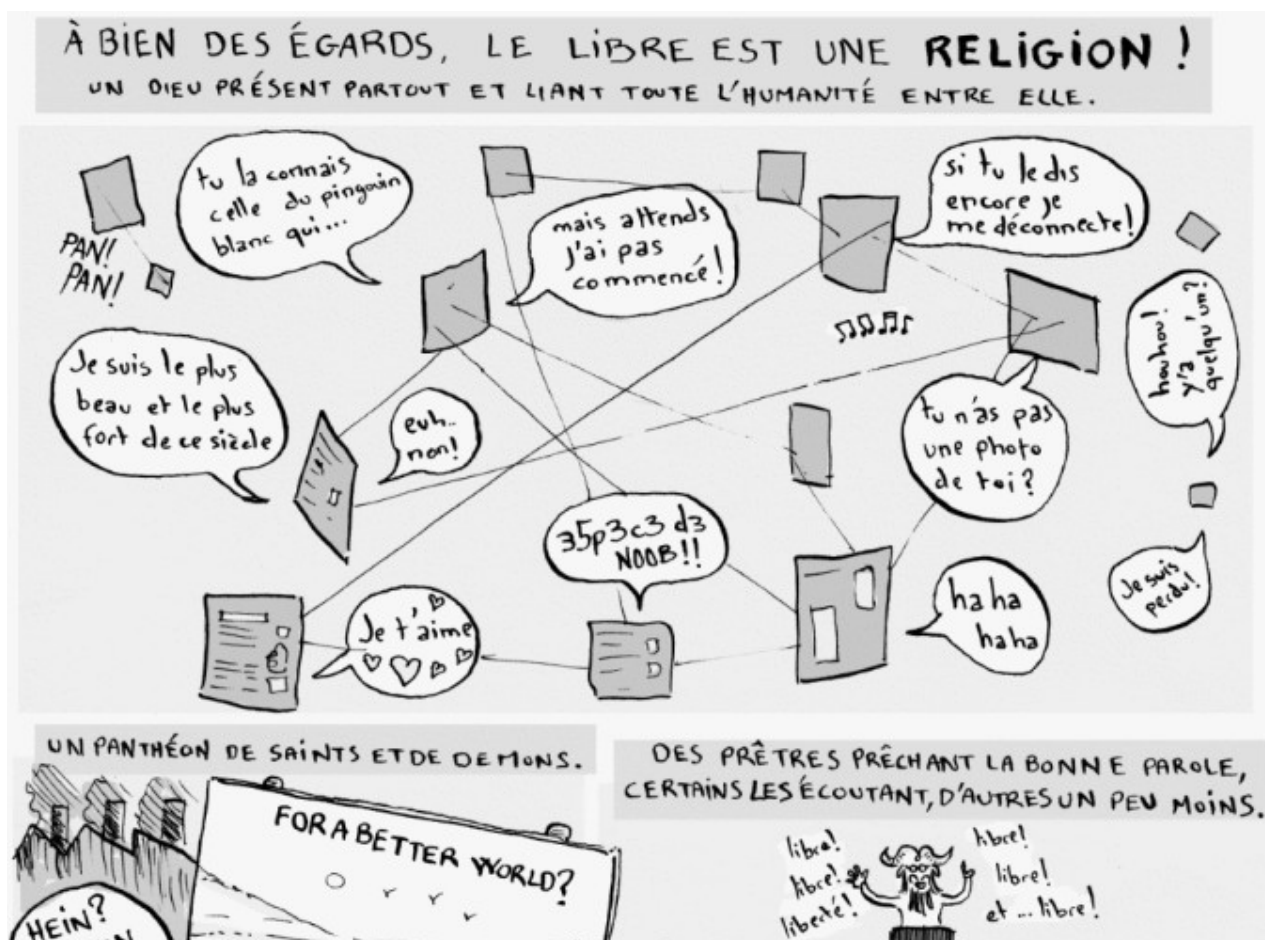 À BIEN DES ÉGARDS, LE LIBRE EST UNE RELIGION !
UN DIEU PRÉSENT PARTOUT ET LIANT TOUTE L'HUMANITÉ ENTRE ELLE.
PAN!
PAN!
tu la connais
celle du pingouin
blanc qui...
mais attends
j'ai pas
commencé!
si tu le dis
encore je
me déconnecte!
houhou!
y'a
quelqu'un?
Je suis le plus
beau et le plus
fort de ce siècle
euh..
non!
tu n'as pas
une photo
de toi?
35p3c3 d3
NOOB!!
Je t'aime
ha ha
ha ha
Je suis
perdu!
UN PANTHÉON DE SAINTS ET DE DEMONS.
FOR A BETTER WORLD?
HEIN?
DES PRÊTRES PRÊCHANT LA BONNE PAROLE,
CERTAINS LES ÉCOUTANT, D'AUTRES UN PEU MOINS.
libre!
libre!
liberté!
libre!
libre!
et ... libre!